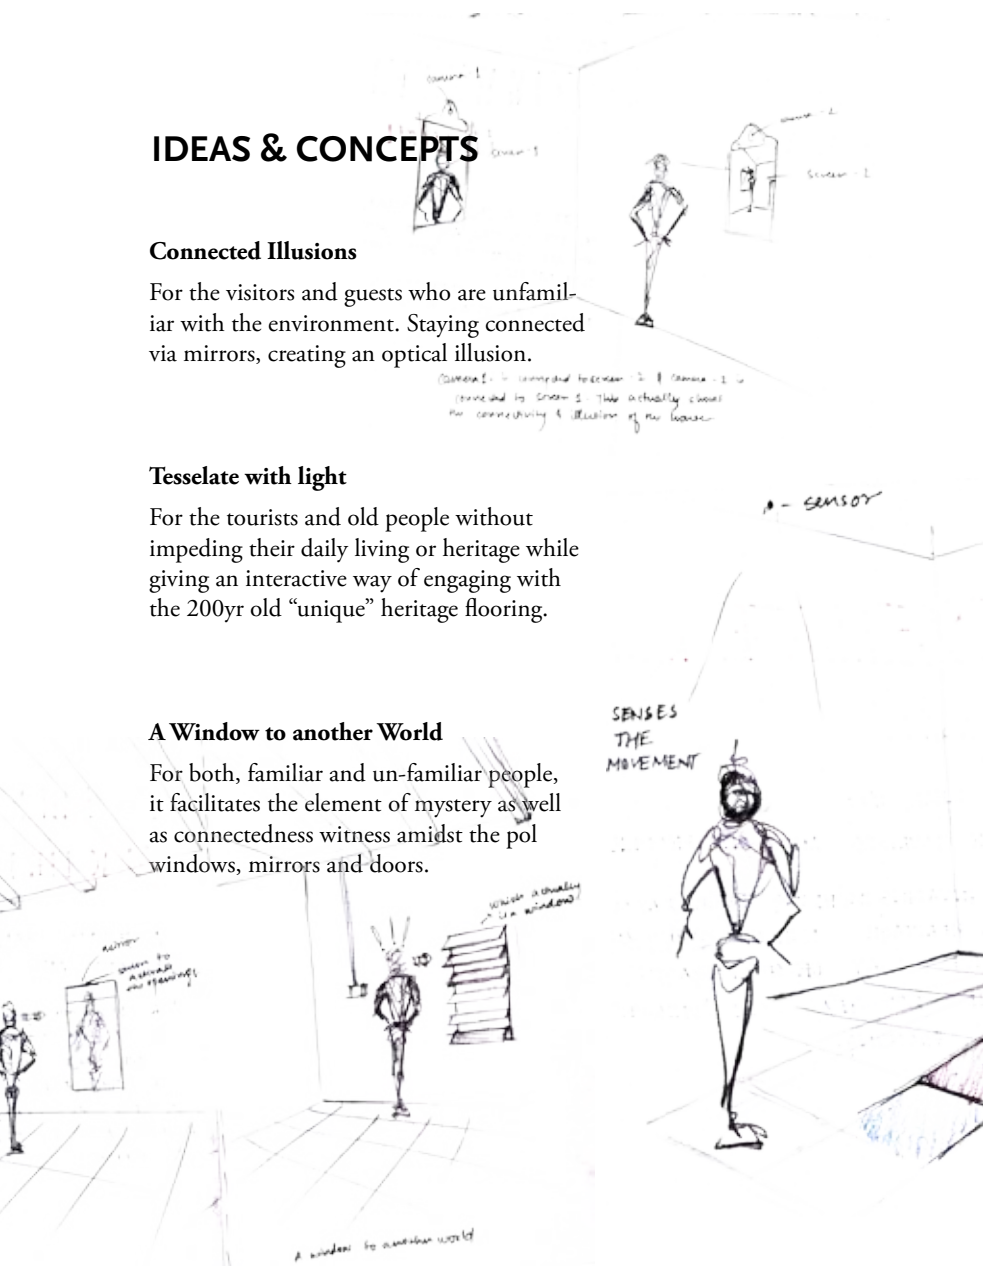 camera 1
IDEAS & CONCEPTS
screen - 1
camera - 2
screen - 2
Connected Illusions
For the visitors and guests who are unfamil-
iar with the environment. Staying connected
via mirrors, creating an optical illusion.
camera 1. is connected to screen - 2 & camera - 2 is
connected to screen 1. This actually shows
the connectivity & illusion of the house
Tesselate with light
For the tourists and old people without
impeding their daily living or heritage while
giving an interactive way of engaging with
the 200yr old “unique” heritage flooring.
- sensor
SENSES
THE
MOVEMENT
A Window to another World
For both, familiar and un-familiar people,
it facilitates the element of mystery as well
as connectedness witness amidst the pol
windows, mirrors and doors.
which actually
is a window
mirror
to
A window to another world